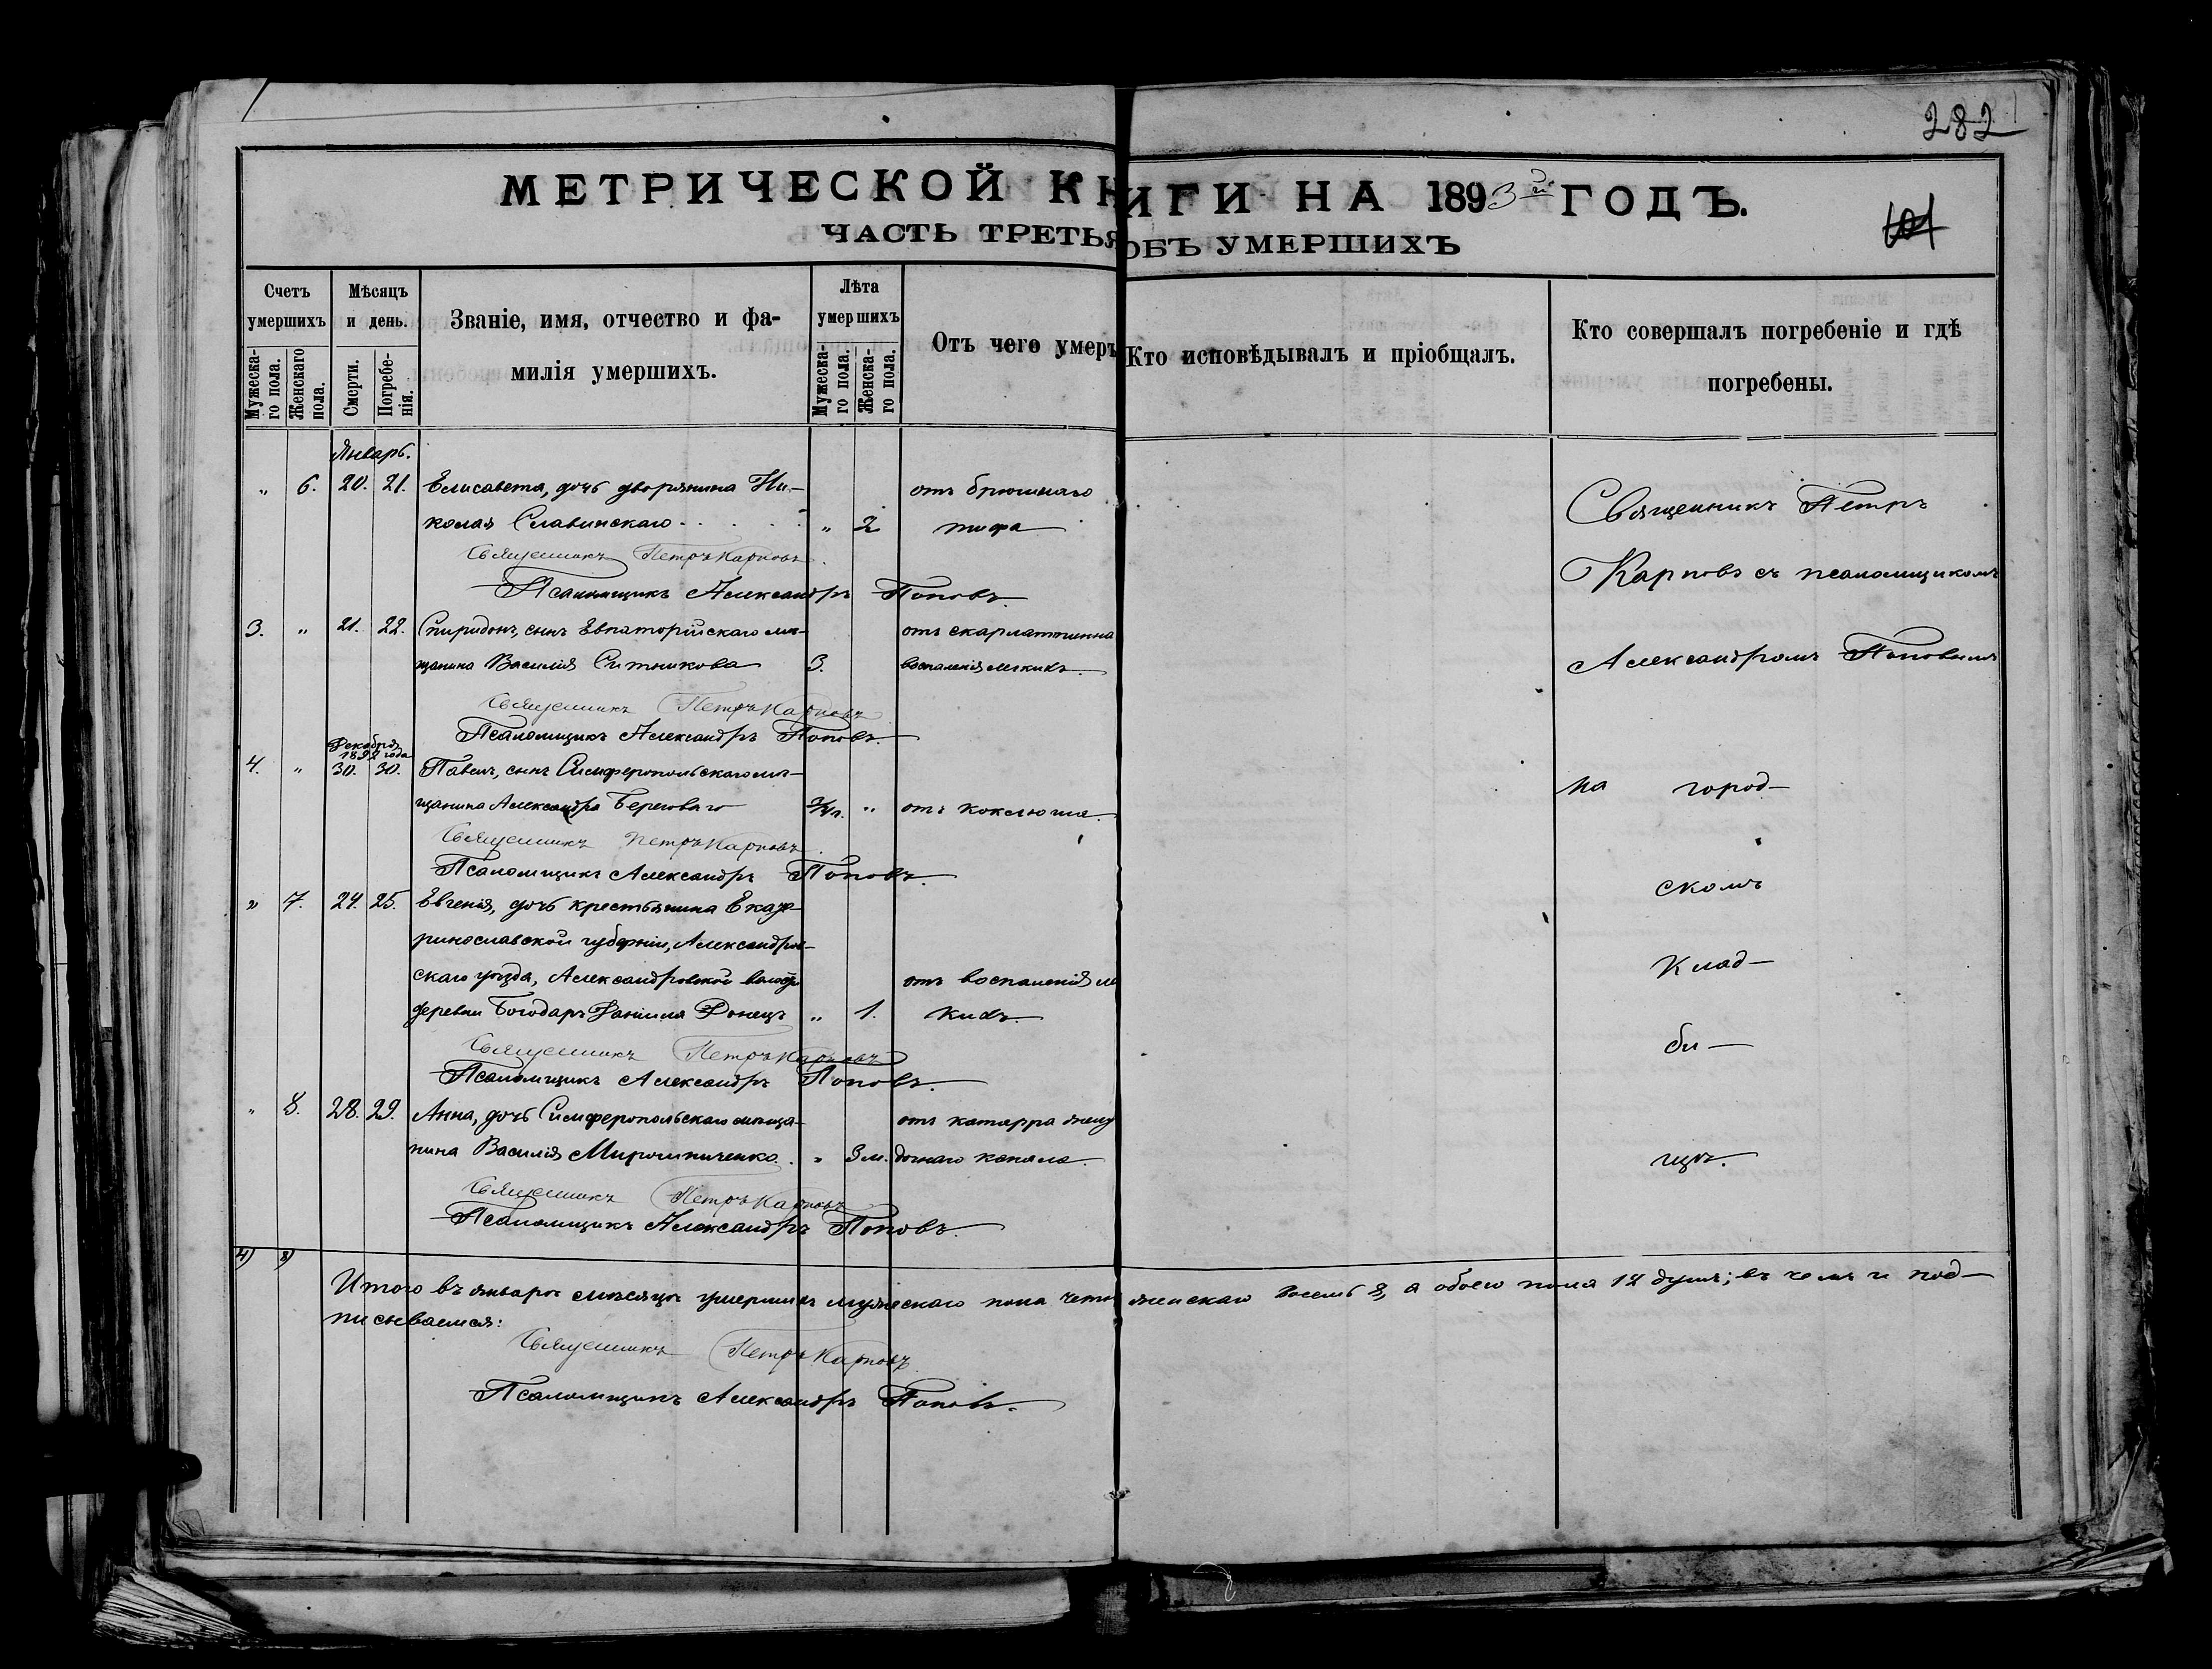 282
МЕТРИЧЕСКОЙ КНИГИ НА 1893й ГОДЪ.
ЧАСТЬ ТРЕТЬЯ ОБЪ УМЕРШИХЪ
Счетъ умершихъ
Мужескаго пола.
Женскаго пола.
Мѣсяцъ и день.
Смерти.
Погребенія.
Званіе, имя, отчество и фамилія умершихъ.
Лѣта умершихъ
Мужескаго пола.
Женскаго пола.
Отъ чего умеръ
Кто исповѣдывалъ и пріобщалъ.
Кто совершалъ погребеніе и гдѣ погребены.
Январь.
„ 6. 20. 21. Елисавета, дочь дворянина Ни- отъ брюшнаго
колая Славинскаго „ 2 тифа
Священникъ Петръ Карповъ.
Псаломщикъ Александръ Поповъ.
3. „ 21. 22. Спиридонъ, сынъ Евпаторійскаго мѣ- отъ скарлатинна
щанина Василія Ситникова 3. воспаленія легкихъ.
Священникъ Петръ Карповъ
Псаломщикъ Александръ Поповъ.
Декабря
1892 года
4. „ 30. 30. Павелъ, сынъ Симферопольскаго мѣ-
щанина Александра Береговаго „ отъ коклюша.
Священникъ Петръ Карповъ.
Псаломщикъ Александръ Поповъ.
„ 7. 24. 25. Евгенія, дочь крестьянина Екате-
ринославской губерніи, Александров-
скаго уѣзда, Александровской волости отъ воспаленія ле
деревни Богодаръ Даніила Донецъ „ 1. кихъ.
Священникъ Петръ Карповъ
Псаломщикъ Александръ Поповъ.
„ 8. 28. 29. Анна, дочь Симферопольскаго мѣща- отъ катарра желу
нина Василія Мирошниченко. „ 3 м. дочнаго канала.
Священникъ Петръ Карповъ
Псаломщикъ Александръ Поповъ.
Священникъ Петръ
Карповъ съ псаломщикомъ
Александромъ Поповымъ
на город-
скомъ
клад-
би-
щѣ.
4) 8)
Итого въ январѣ мѣсяцѣ умершихъ мужескаго пола четы женскаго восемь 8, а обоего пола 12 душъ; въ чемъ и под-
писываемся:
Священникъ Петръ Карповъ
Псаломщикъ Александръ Поповъ.